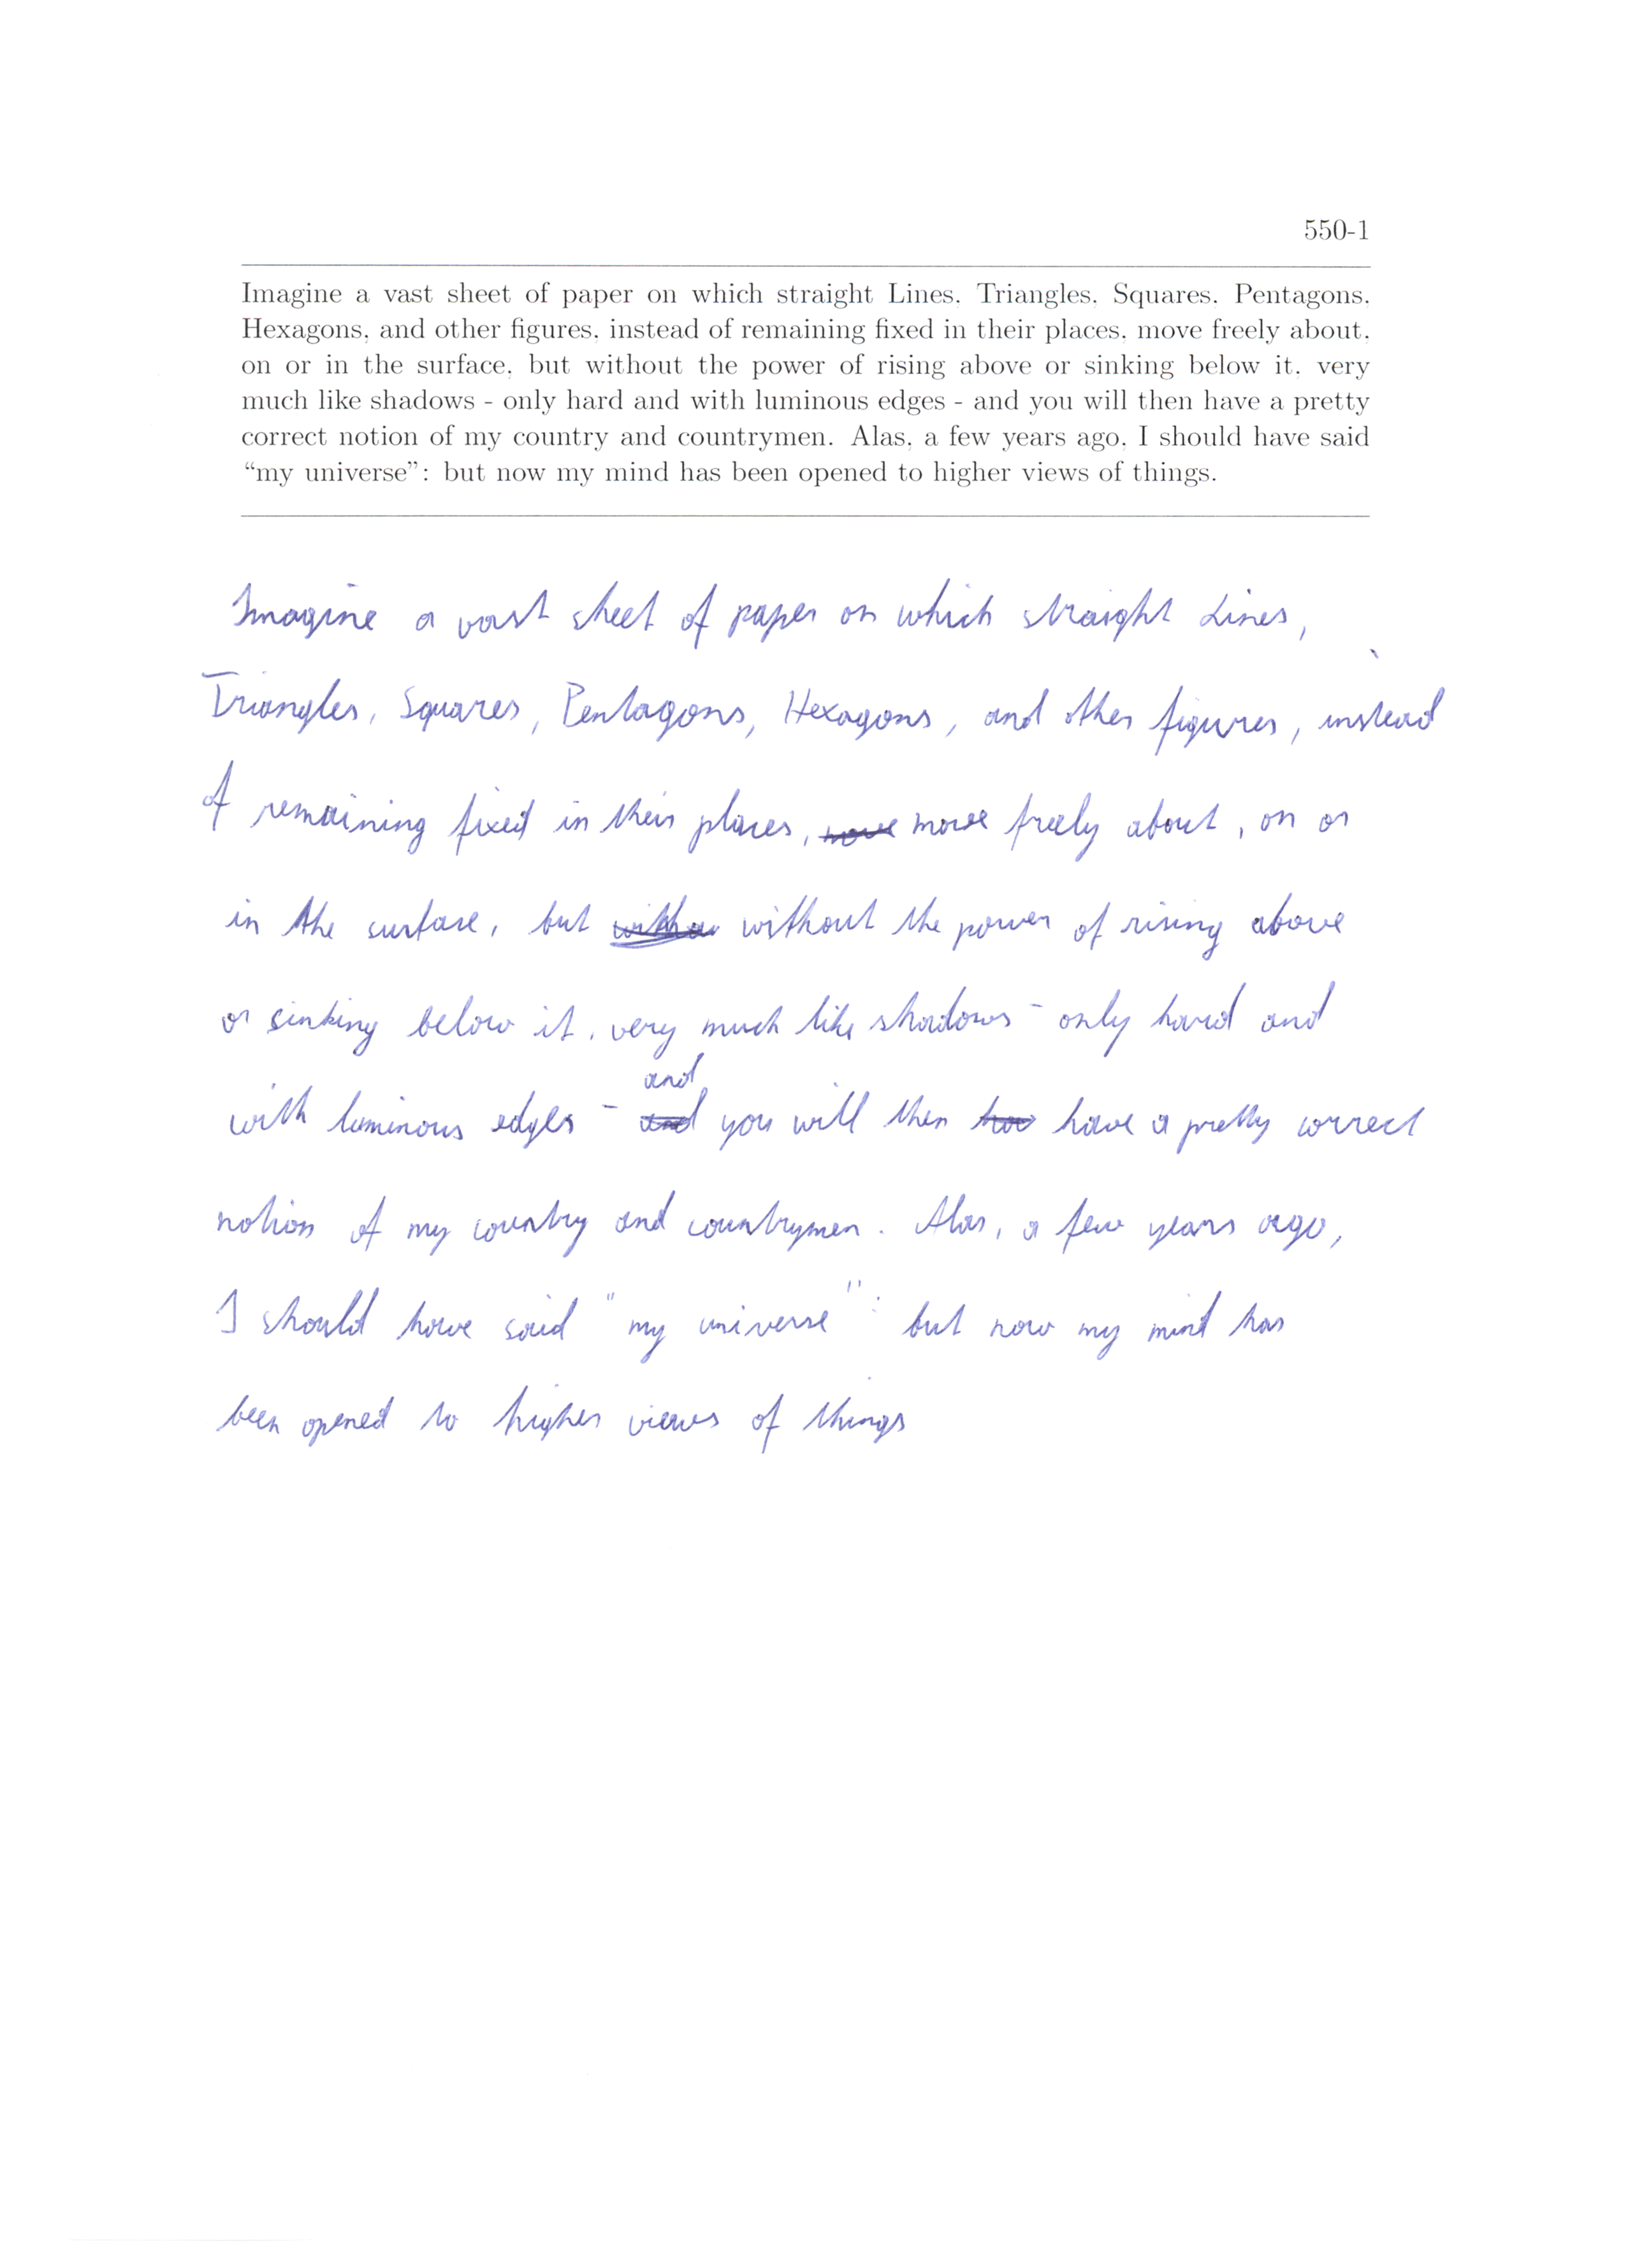 550-1
Imagine a vast sheet of paper on which straight Lines, Triangles, Squares, Pentagons,
Hexagons, and other figures, instead of remaining fixed in their places, move freely about,
on or in the surface, but without the power of rising above or sinking below it, very
much like shadows - only hard and with luminous edges - and you will then have a pretty
correct notion of my country and countrymen. Alas, a few years ago, I should have said
“my universe”: but now my mind has been opened to higher views of things.
Imagine a vast sheet of paper on which straight Lines,
Triangles, Squares, Pentagons, Hexagons, and other figures, instead
of remaining fixed in their places, move move freely about, on or
in the surface, but witho without the power of rising above
or sinking below it, very much like shadows - only hard and
and
with luminous edges - and you will then hav have a pretty correct
notion of my country and countrymen. Alas, a few years ago,
I should have said "my universe": but now my mind has
been opened to higher views of things